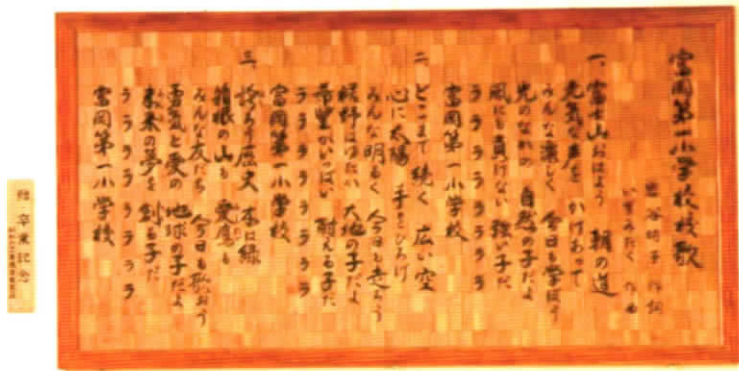 富岡第一小学校校歌
岩谷時子 作詞
いずみたく 作曲
一、富士山おはよう 朝の道
元気な声を かけあって
みんな楽しく 今日も学ぼう
光のなかの 自然の子だよ
風にも負けない 強い子だ
ラララララララ
富岡第一小学校
二、どこまで続く 広い空
心に太陽 手をひろげ
みんな明るく 今日も走ろう
裾野はげたい 大地の子だよ
希望がいっぱい 耐える子だ
ラララララララ
富岡第一小学校
三、誇ろう歴史 木は緑
箱根の山も 愛鷹も
みんな友だち 今日も歌おう
勇気と愛の 地球の子だよ
未来の夢を 創る子だ
ラララララララ
富岡第一小学校
卒業記念